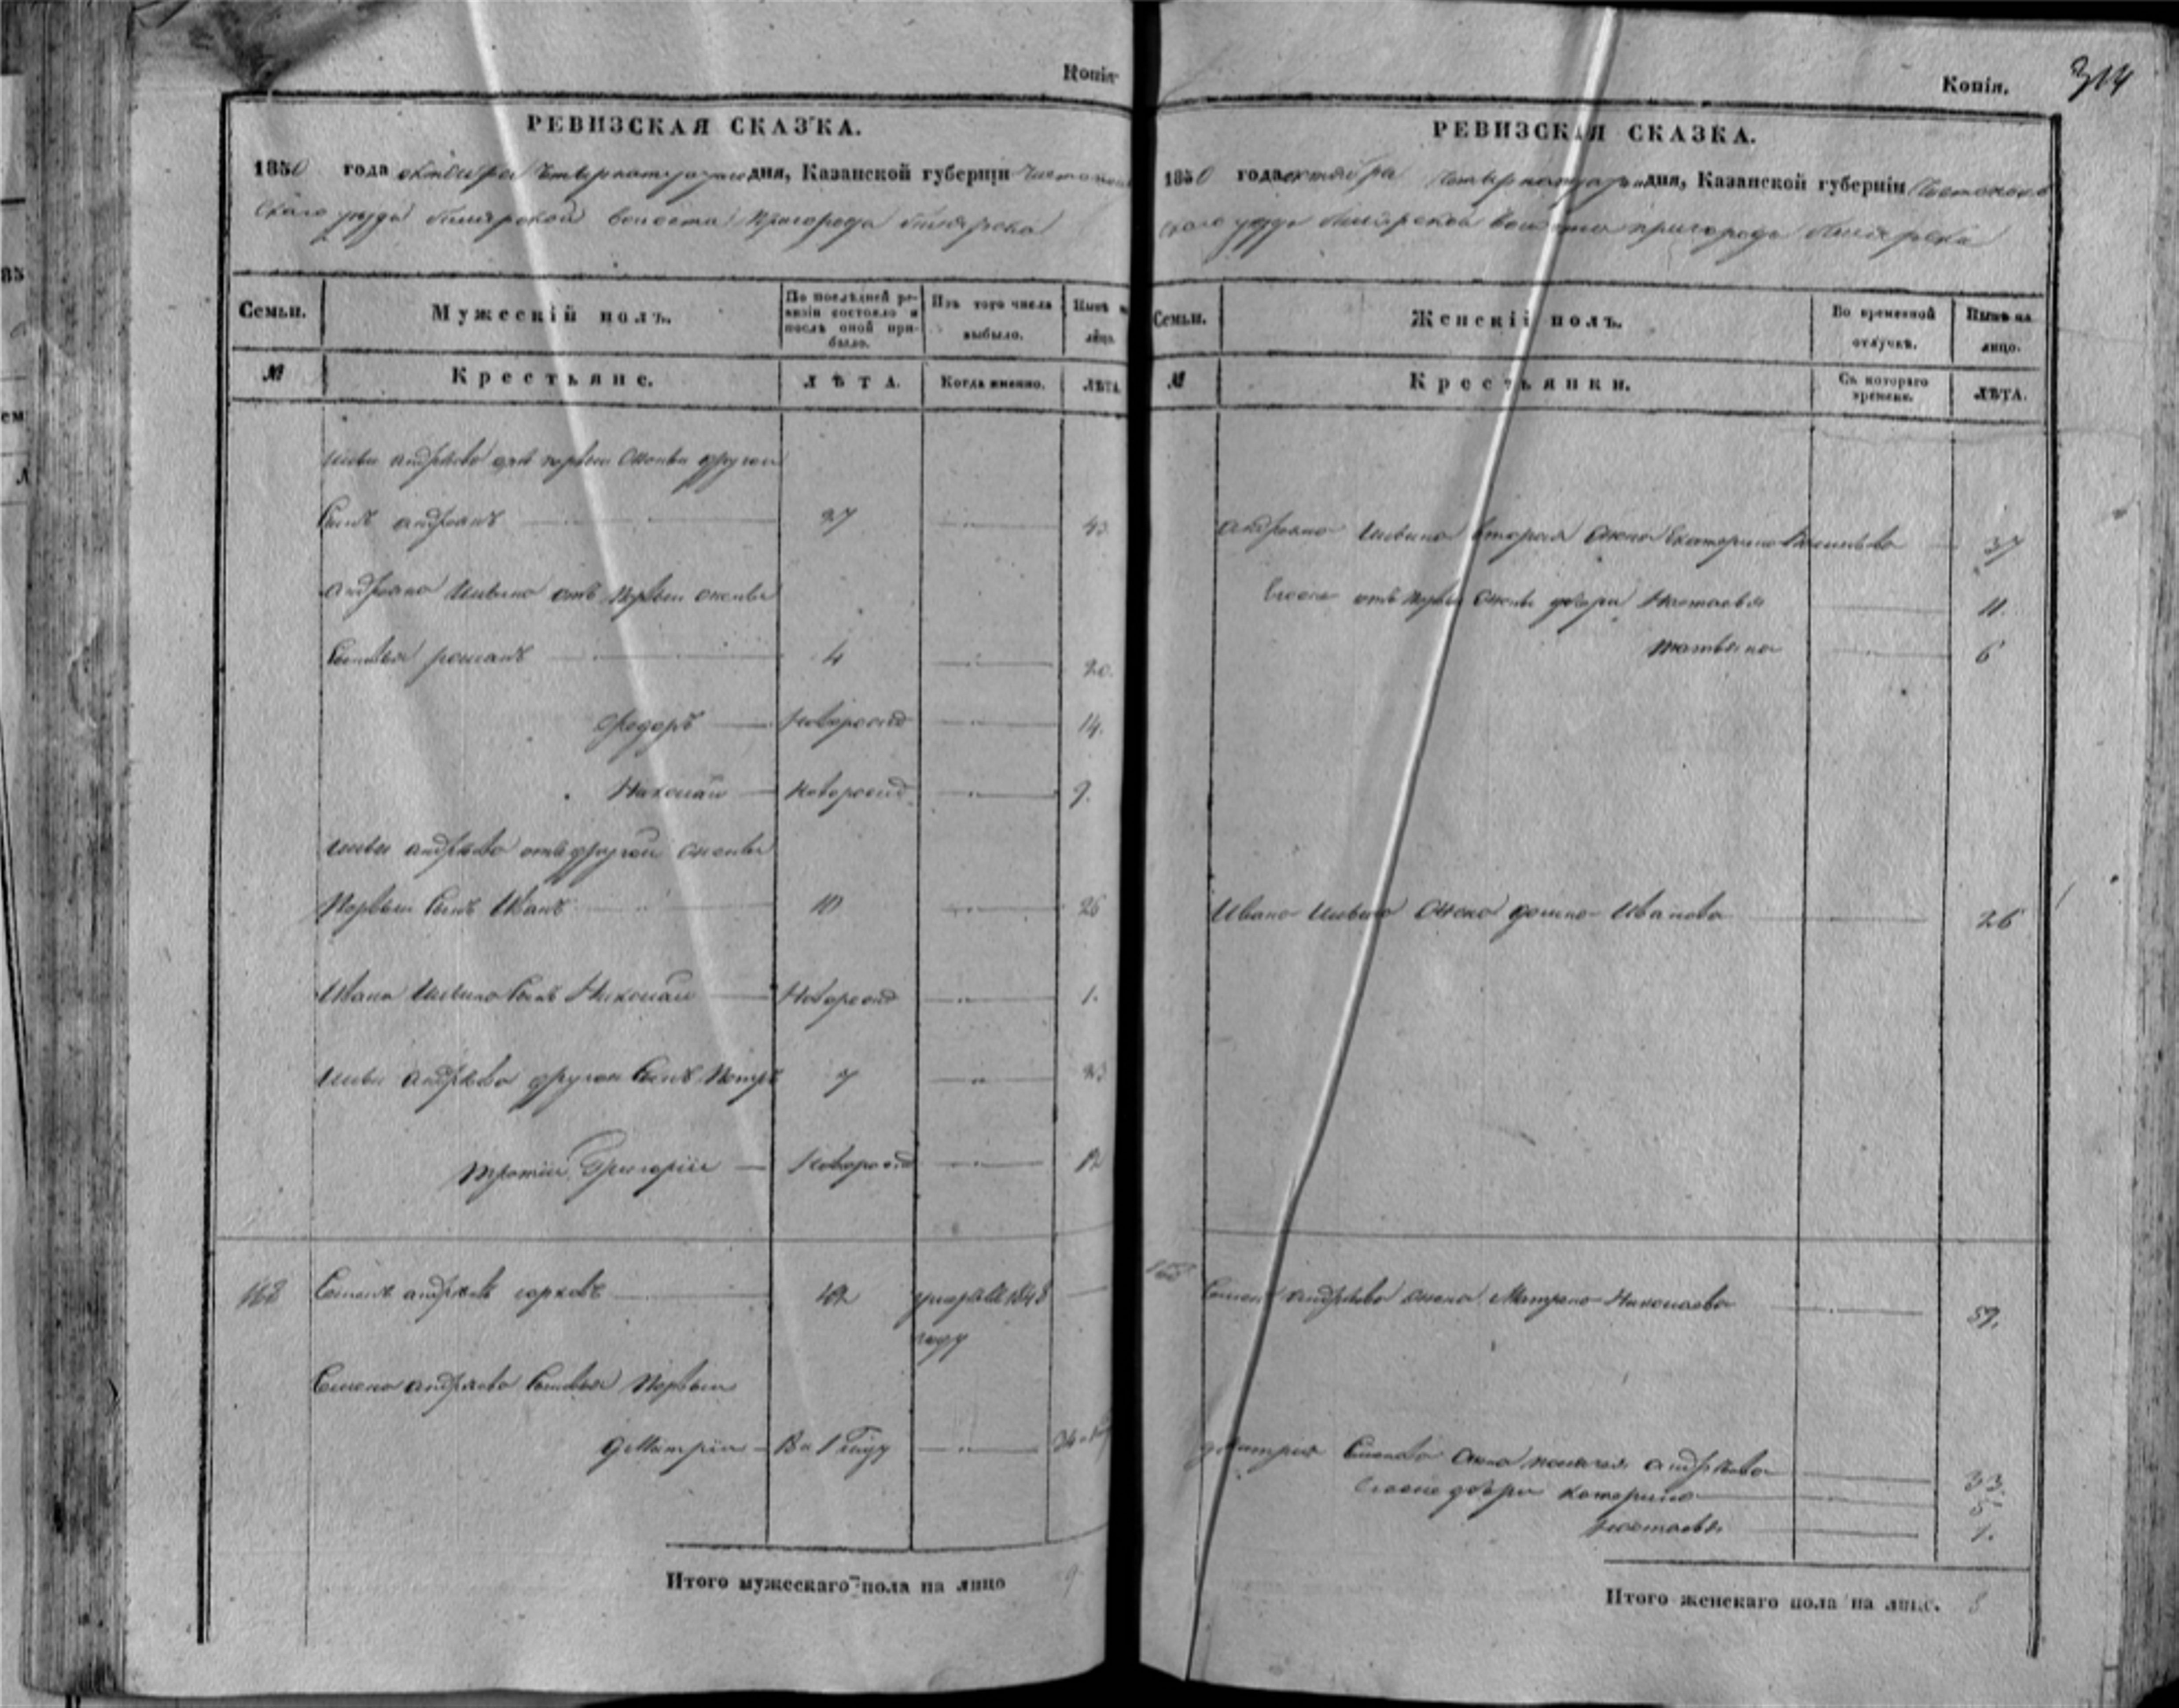 Копія
РЕВИЗСКАЯ СКАЗКА.
1850 года октября четырнатцатаго дня, Казанской губерніи Чистополь
скаго уезда Билярской волости пригорода Билярска
Семьи.
Мужескій полъ.
По послѣдней ре-
визіи состояло и
послѣ оной при-
было.
Изъ того числа
выбыло.
Нынѣ н
лицо.
№
Крестьяне.
ЛѢТА.
Когда именно.
ЛѢТА
андреева отъ первой жены другой
Сынъ андреянъ 27 43
андреяна отъ первой жены
Сыновья романъ 4 20.
Федоръ Новорожд 14.
Николай Новорожд. 9.
андреева отъ другой жены
Первый Сынъ Иванъ 10 26
Ивана Сынъ Николай Новорожд 1.
андреева другой Сынъ Петръ 7 23
третий Григорий Новорожд 12
168 Семенъ андреевъ 42 1848
году
Семена андреева Сыновья Первый
Дмитрий В 1 году
Итого мужескаго пола на лицо 9
Копія.
314
РЕВИЗСКАЯ СКАЗКА.
1850 года октября четырнатцатаго дня, Казанской губерніи Чистополь
скаго уезда Билярской волости пригорода Билярска
Семьи.
Женскій полъ.
Во временной
отлучкѣ.
Нынѣ на
лицо.
№
Крестьянки.
Съ котораго
времени.
ЛѢТА.
андреяна вторая жена Екатерина 37
отъ первой жены дочери Настасья 11.
татьяна 6
Ивана жена домна Иванова 26
168 Семена андреева жена Матрена Николаева 59.
Дмитрия Семенова жена андреева 33.
дочери катерина 5
настасья 1.
Итого женскаго пола на лицо. 8